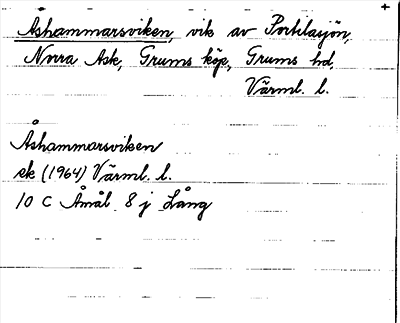 Åshammarsviken, vik av Portilasjön,
Norra Ask, Grums köp, Grums hd,
Värml. l.
Åshammarsviken
ek (1964) Värml. l.
10 C Åmål 8 j Lång